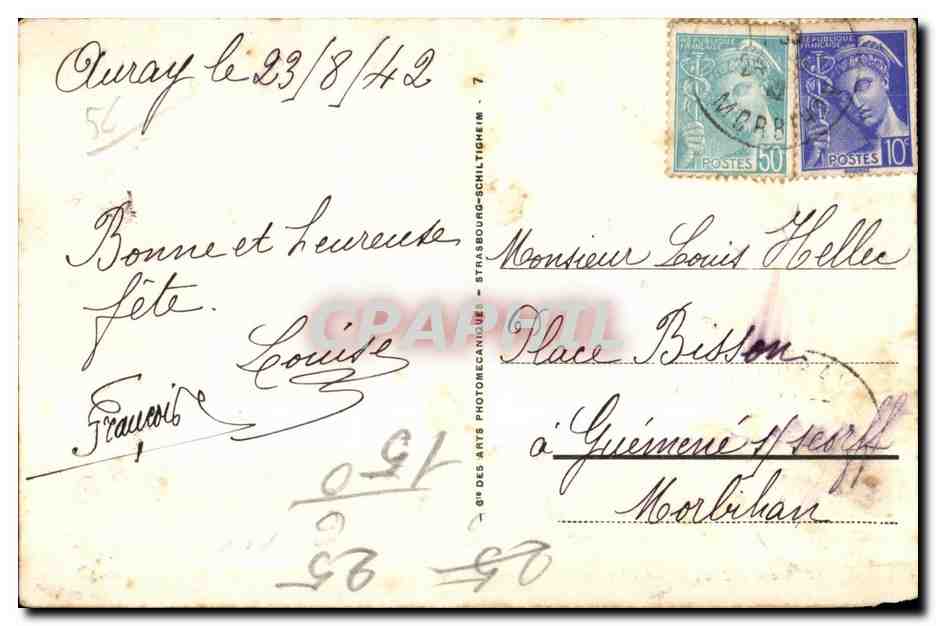 Auray le 23/8/42
56
Bonne et heureuse
fête.
Louise
François
CPAPHIL
Cie DES ARTS PHOTOMECANIQUES - STRASBOURG-SCHILTIGHEIM - 7
RÉPUBLIQUE
FRANÇAISE
POSTES 50c
RÉPUBLIQUE
FRANÇAISE
POSTES 10c
MORBIHAN
Monsieur Louis Hellec
Place Bisson
à Guémené s/ scorff
Morbihan
150
25
25